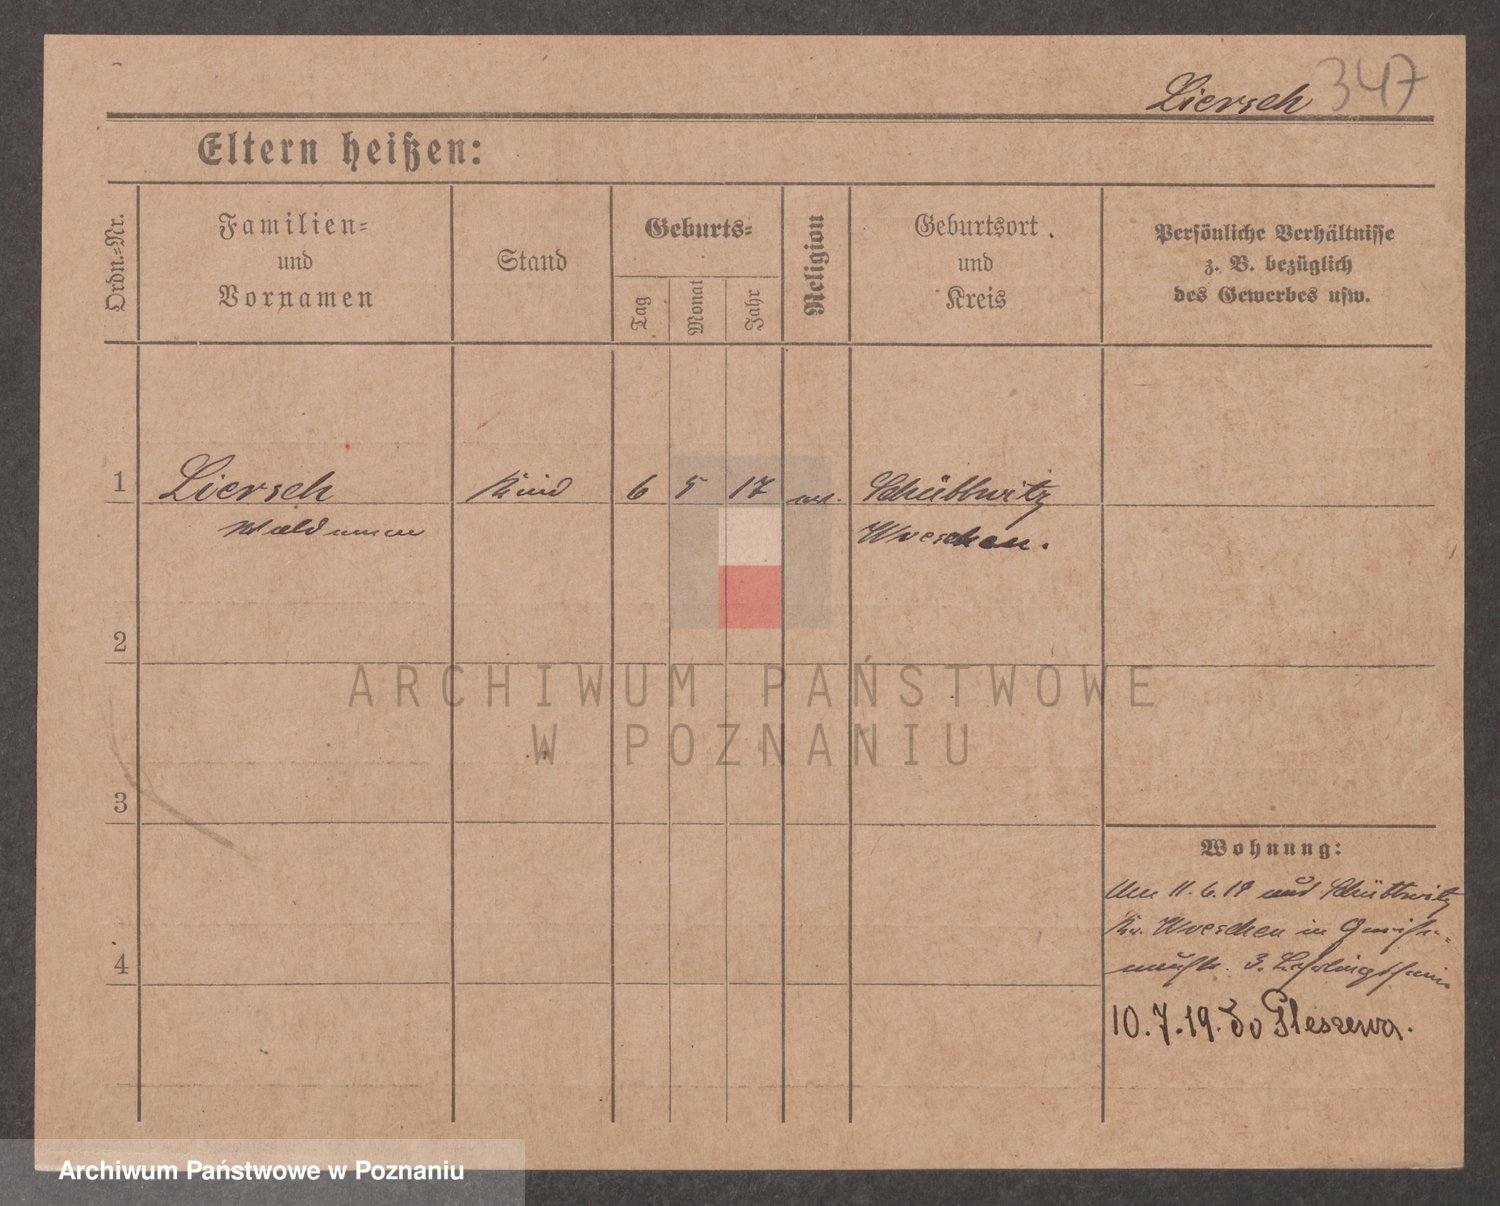 Liersch 347
Eltern heißen:
Ordn.=Nr.
Familien=
und
Vornamen
Stand
Geburts=
Tag
Monat
Jahr
Religion
Geburtsort
und
Kreis
Persönliche Verhältnisse
z. B. bezüglich
des Gewerbes usw.
1 Liersch Kind 6 5 17 ev.
Waldemar Wreschen.
2
3
4
ARCHIWUM PAŃSTWOWE
W POZNANIU
Wohnung:
11. 6. 19
Kr. Wreschen in
3.
10.7.19. do Pleszewa.
Archiwum Państwowe w Poznaniu